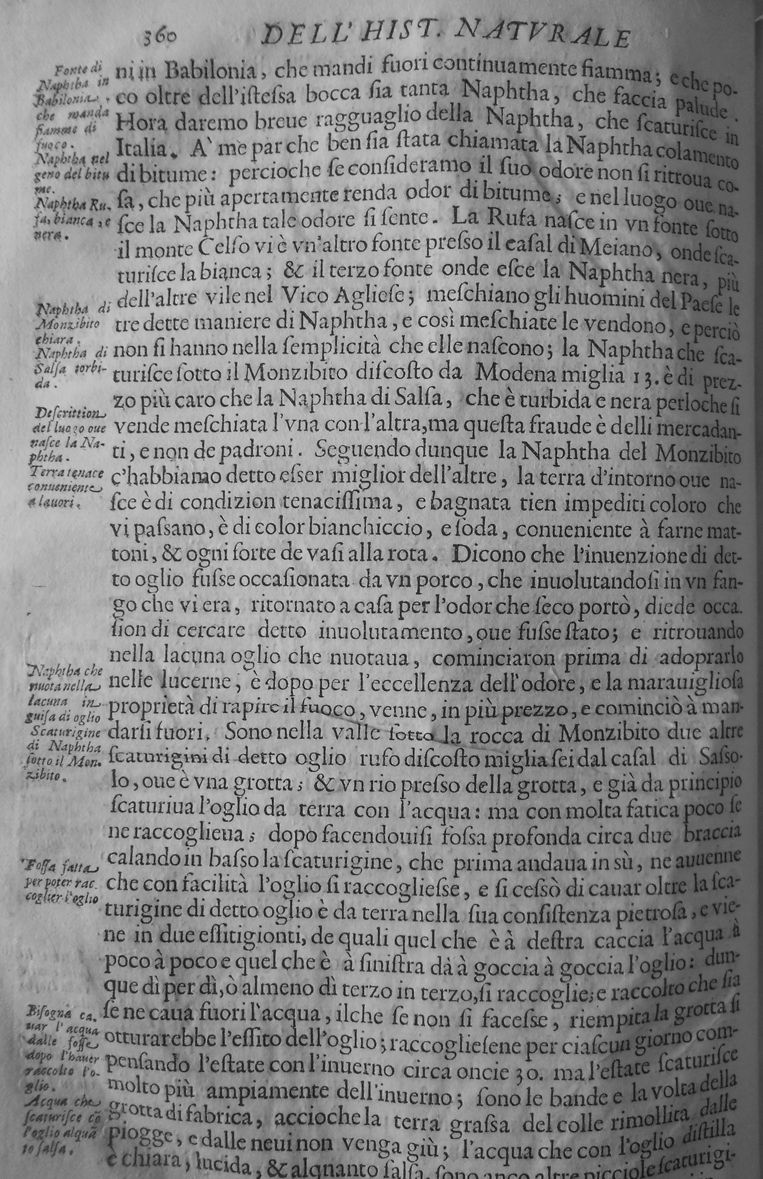 360 DELL'HIST. NATVRALE
Fonte di
Naphtha in
Babilonia,
che manda
fiamme di
fuoco.
Naphtha nel
geno del bitu
me.
Naphtha Ru.
fa, bianca, e
nera.
Naphtha di
Monzibito
chiara.
Naphtha di
Salſa torbi-
da.
Deſcrittion
del luogo oue
naſce la Na-
phtha.
Terra tenace
conueniente
a lauori.
Naphtha che
nuota nella
lacuna in
guiſa di oglio
Scaturigine
di Naphtha
ſotto il Mon.
zibito.
Foſſa fatta
per poter rac.
coglier l'oglio
Biſogna ca.
uar l'acqua
dalle foſſe
dopo l'hauer
raccolto l'o-
glio.
Acqua che
ſcaturiſce cõ
l'oglio alquã
to ſalſa.
ni in Babilonia, che mandi fuori continuamente fiamma; e che po-
co oltre dell'iſteſsa bocca ſia tanta Naphtha, che faccia palude.
Hora daremo breue ragguaglio della Naphtha, che ſcaturiſce in
Italia. A' me par che ben ſia ſtata chiamata la Naphtha colamento
di bitume: percioche ſe conſideramo il ſuo odore non ſi ritroua co-
ſa, che più apertamente renda odor di bitume; e nel luogo oue na-
ſce la Naphtha tale odore ſi ſente. La Rufa naſce in vn fonte ſotto
il monte Celſo vi è vn'altro fonte preſso il caſal di Meiano, onde ſca-
turiſce la bianca; & il terzo fonte onde eſce la Naphtha nera, più
dell'altre vile nel Vico Aglieſe; meſchiano gli huomini del Paeſe le
tre dette maniere di Naphtha, e così meſchiate le vendono, e perciò
non ſi hanno nella ſemplicità che elle naſcono; la Naphtha che ſca-
turiſce ſotto il Monzibito diſcoſto da Modena miglia 13. è di prez-
zo più caro che la Naphtha di Salſa, che è turbida e nera perloche ſi
vende meſchiata l'vna con l'altra, ma queſta fraude è delli mercadan-
ti, e non de padroni. Seguendo dunque la Naphtha del Monzibito
c'habbiamo detto eſser miglior dell'altre, la terra d'intorno oue na-
ſce è di condizion tenaciſſima, e bagnata tien impediti coloro che
vi paſsano, è di color bianchiccio, e ſoda, conueniente à farne mat-
toni, & ogni ſorte de vaſi alla rota. Dicono che l'inuenzione di det-
to oglio fuſse occaſionata da vn porco, che inuolutandoſi in vn fan-
go che vi era, ritornato a caſa per l'odor che ſeco portò, diede occa.
ſion di cercare detto inuolutamento, oue fuſse ſtato; e ritrouando
nella lacuna oglio che nuotaua, cominciaron prima di adoprarlo
nelle lucerne; è dopo per l'eccellenza dell'odore, e la marauiglioſa
proprietà di rapire il fuoco, venne, in più prezzo, e cominciò à man-
darſi fuori. Sono nella valle ſotto la rocca di Monzibito due altre
ſcaturigini di detto oglio rufo diſcoſto miglia ſei dal caſal di Saſso-
lo, oue è vna grotta; & vn rio preſso della grotta, e già da principio
ſcaturiua l'oglio da terra con l'acqua: ma con molta fatica poco ſe
ne raccoglieua; dopo facendouiſi foſsa profonda circa due braccia
calando in baſso la ſcaturigine, che prima andaua in sù, ne auuenne
che con facilità l'oglio ſi raccoglieſse, e ſi ceſsò di cauar oltre la ſca-
turigine di detto oglio è da terra nella ſua conſiſtenza pietroſa, e vie-
ne in due eſſitigionti, de quali quel che è à deſtra caccia l'acqua à
poco à poco e quel che è à ſiniſtra dà à goccia à goccia l'oglio: dun-
que di per dì, ò almeno dì terzo in terzo, ſi raccoglie; e raccolto che ſia
ſe ne caua fuori l'acqua, ilche ſe non ſi faceſse, riempita la grotta ſi
otturarebbe l'eſſito dell'oglio; raccoglieſene per ciaſcun giorno com-
penſando l'eſtate con l'inuerno circa oncie 30. ma l'eſtate ſcaturiſce
molto più ampiamente dell'inuerno; ſono le bande e la volta della
grotta di fabrica, acciochela terra graſsa del colle rimollita dalle
piogge, e dalle neui non venga giù; l'acqua che con l'oglio diſtilla
è chiara, lucida, & alquanto ſalſa, ſono anco altre picciole ſcaturigi-